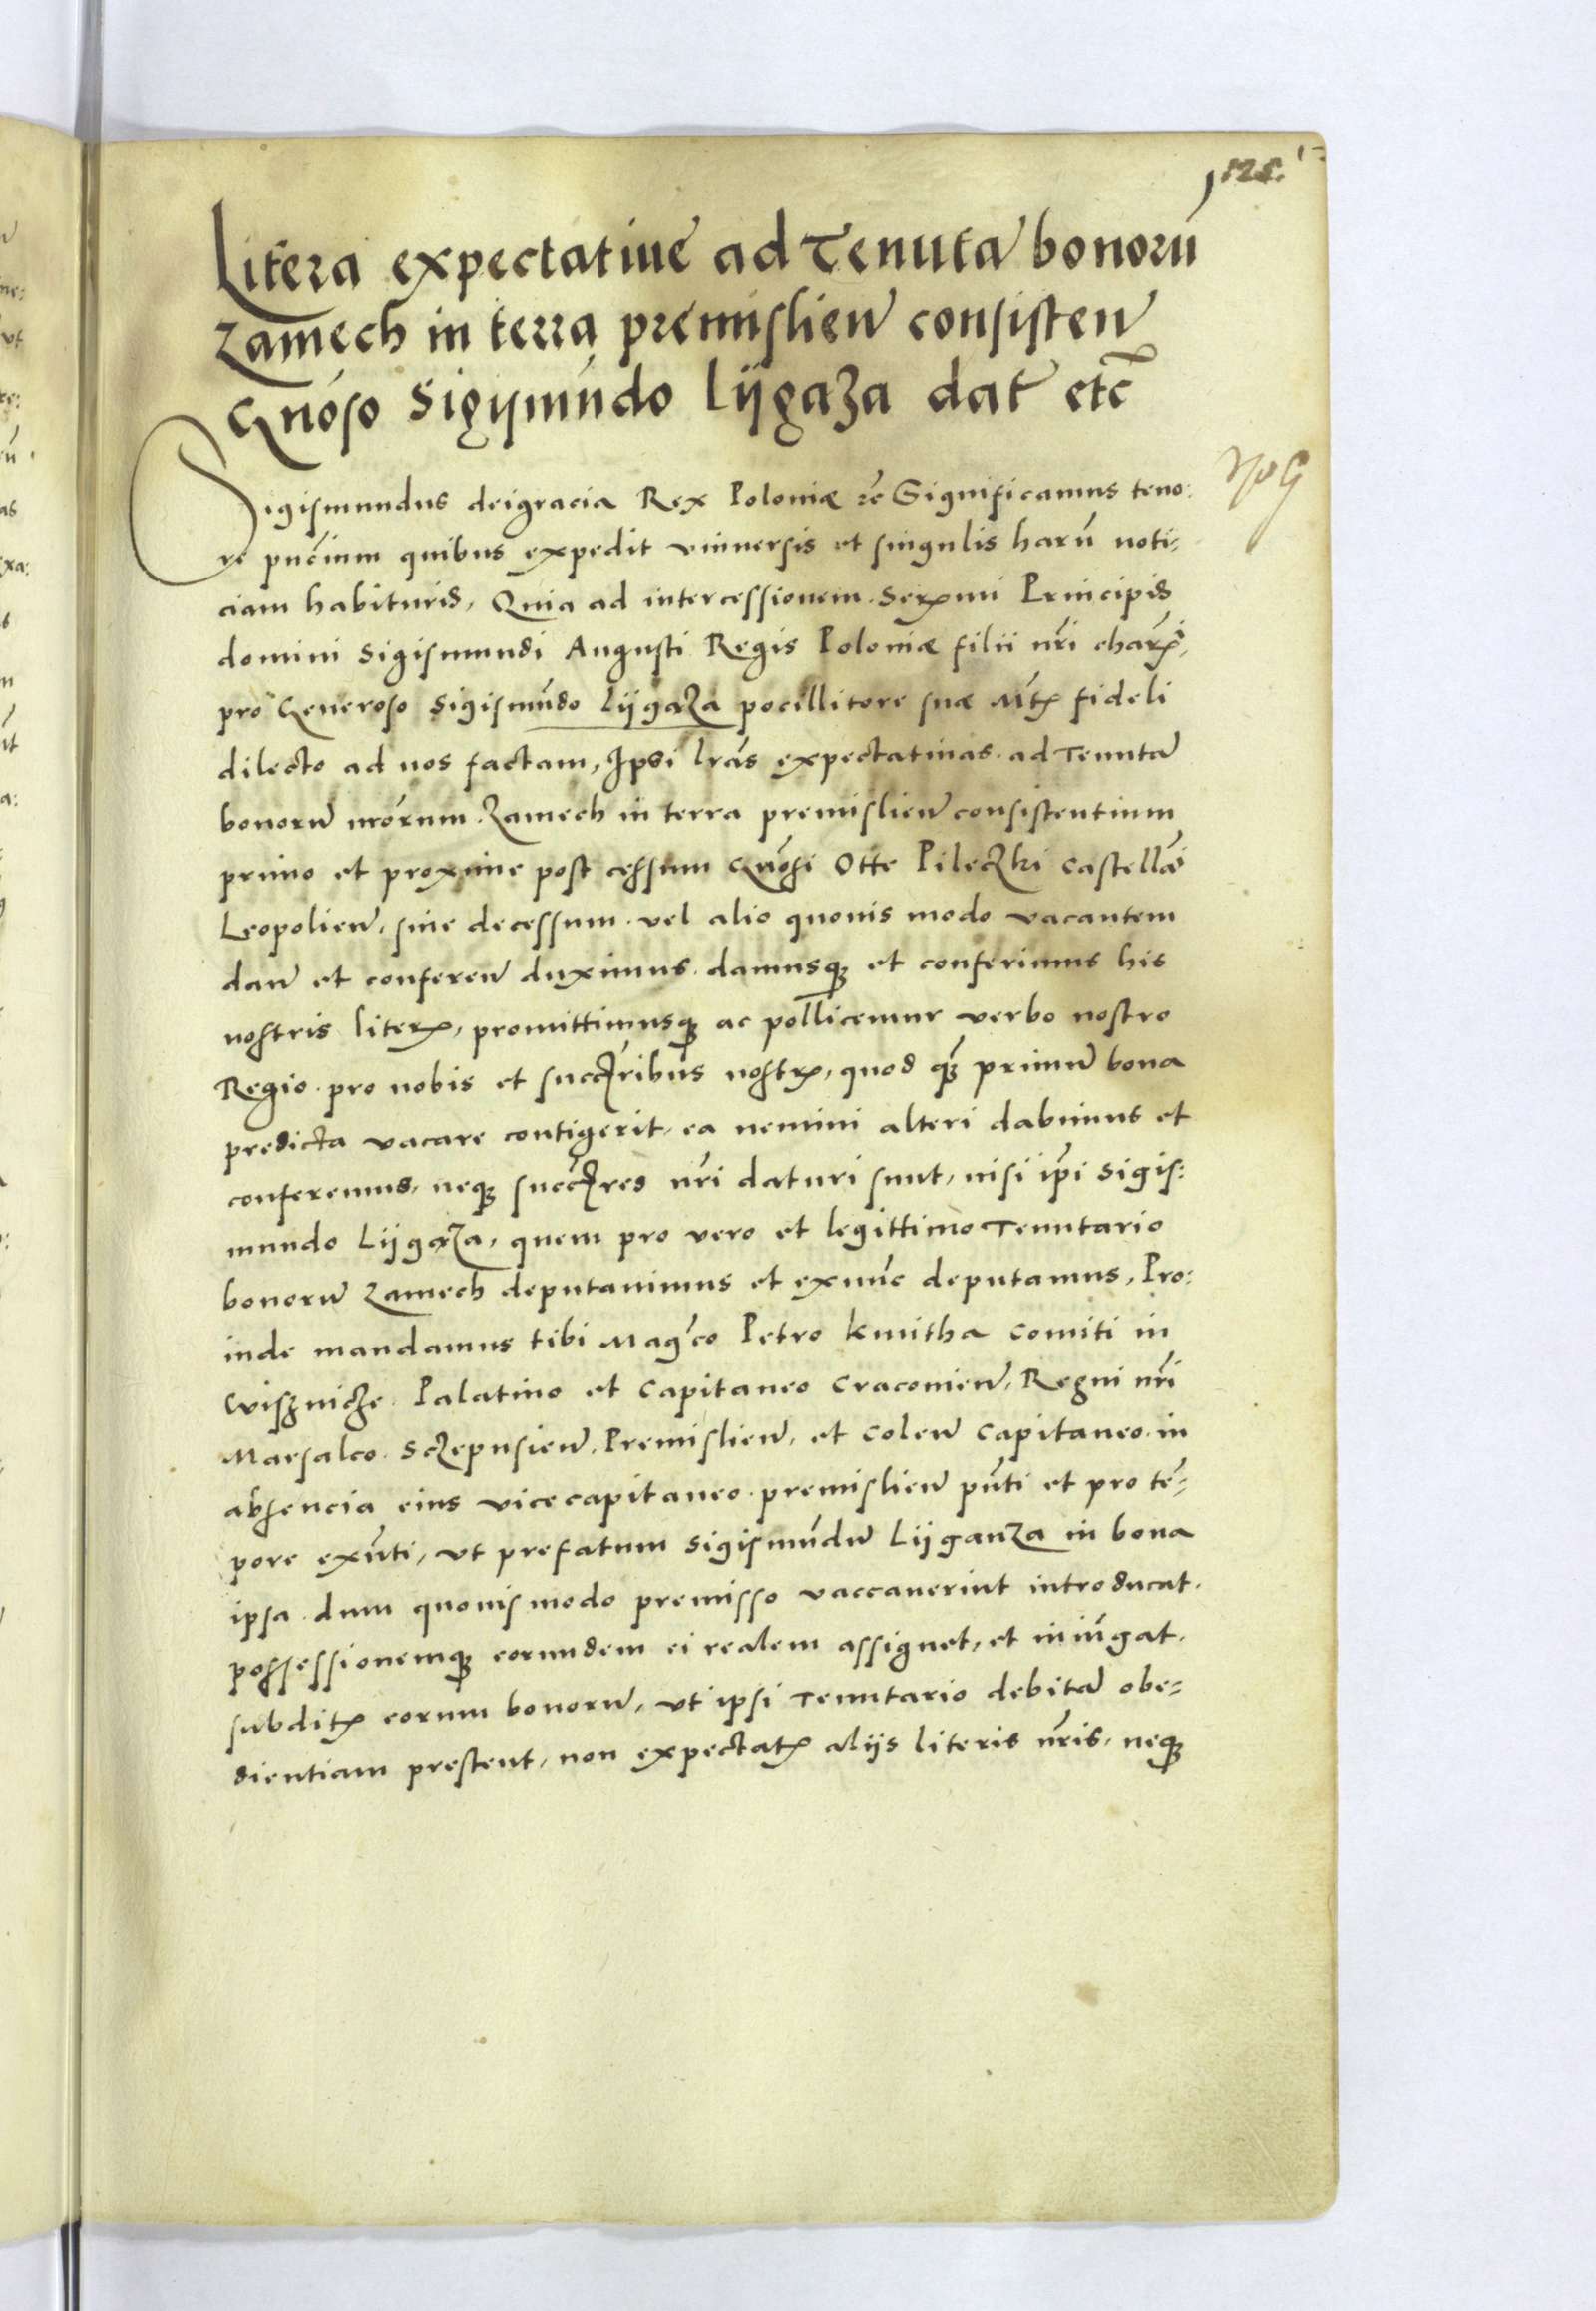 125.
Litera expectatiue ad Tenuta bonorū
Zamech in terra premislien consisten
Gnoso Sigismūndo Liigaza dat etc
Sigismundus dei gracia Rex Poloniæ etc Significamus teno:
re pncium quibus expedit vniuersis et singulis harū noti-
ciam habituris, Quia ad intercessionem Sermi Principis
domini Sigismundi Augusti Regis Poloniæ filii nri char.mi
pro Generoso Sigismūndo Liigaza pocillitore suæ Mtis fideli
dilecto ad nos factam, Ipsi lras expectatiuas ad Tenuta
bonoru nrorum Zamech in terra premislien consistentium
primo et proxime post cessum Gnosi Otte Pileczki Castellani
Leopolien, siue decessum vel alio quouis modo vacantem
dan et conferen duximus, damusq et conferimus his
nostris literis, promittimusq ac pollicemur verbo nostro
Regio pro nobis et succribus nostris, quod q primu bona
predicta vacare contigerit, ea nemini alteri dabimus et
conferemus, neq succres nri daturi sunt, nisi ipi Sigis:
mundo Liigaza, quem pro vero et legittimo Tenutario
bonoru Zamech deputauimus et exnūc deputamus, Pro:
inde mandamus tibi Magco Petro Kmitha Comiti in
Wisznicze Palatino et Capitaneo Cracouien, Regni nri
Marsalco Sczepusien, Premislien, et Colen Capitaneo, in
absencia eius vicecapitaneo premislien pnti et pro tē-
pore exnti, vt prefatum Sigismūndu Liiganza in bona
ipsa dum quouis modo premisso vaccauerint introducat,
possessionemq eorundem ei realem assignet, et iniūgat
subditis eorum bonoru, vt ipsi Tenutario debita obe-
dientiam prestent, non expectatis aliis literis nris, neq